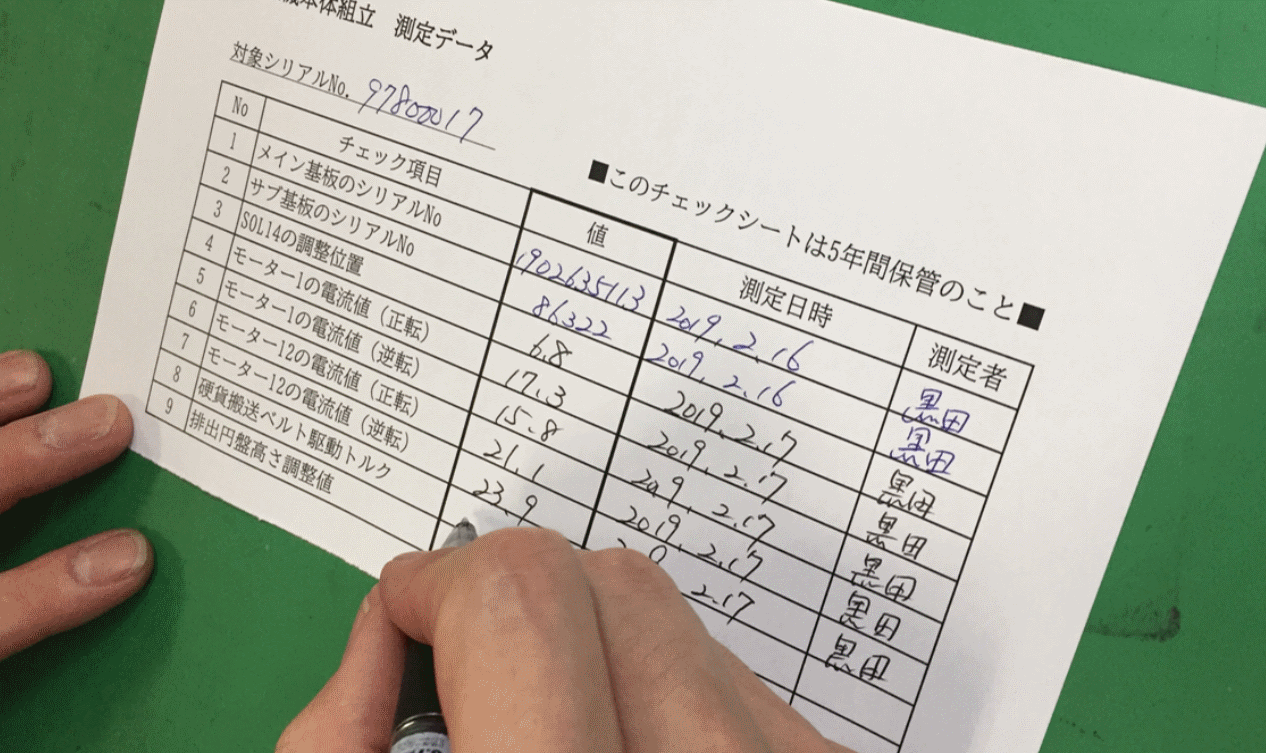 本体組立 測定データ
対象シリアルNo. 97800017
■このチェックシートは5年間保管のこと■
No チェック項目 値 測定日時 測定者
1 メイン基板のシリアルNo 1902635113 2019.2.16 黒田
2 サブ基板のシリアルNo 86322 2019.2.16 黒田
3 SOL14の調整位置 6.8 2019.2.17 黒田
4 モーター1の電流値（正転） 17.3 2019.2.17 黒田
5 モーター1の電流値（逆転） 15.8 2019.2.17 黒田
6 モーター12の電流値（正転） 21.1 2019.2.17 黒田
7 モーター12の電流値（逆転） 23.9 2.17 黒田
8 硬貨搬送ベルト駆動トルク
9 排出円盤高さ調整値